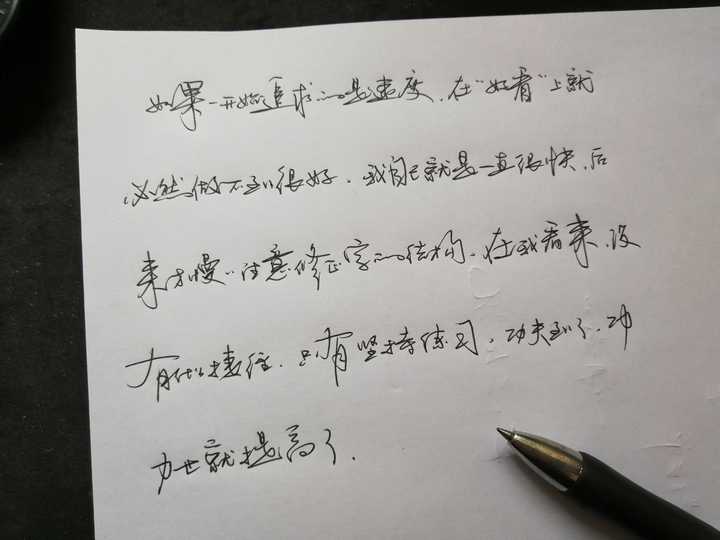 如果一开始追求的是速度,在"好看"上就
必然做不到很好.我自己就是一直很快,后
来才慢慢注意修正字的结构.在我看来,没
有什么捷径.只有坚持练习,功夫到了,功
力也就提高了.